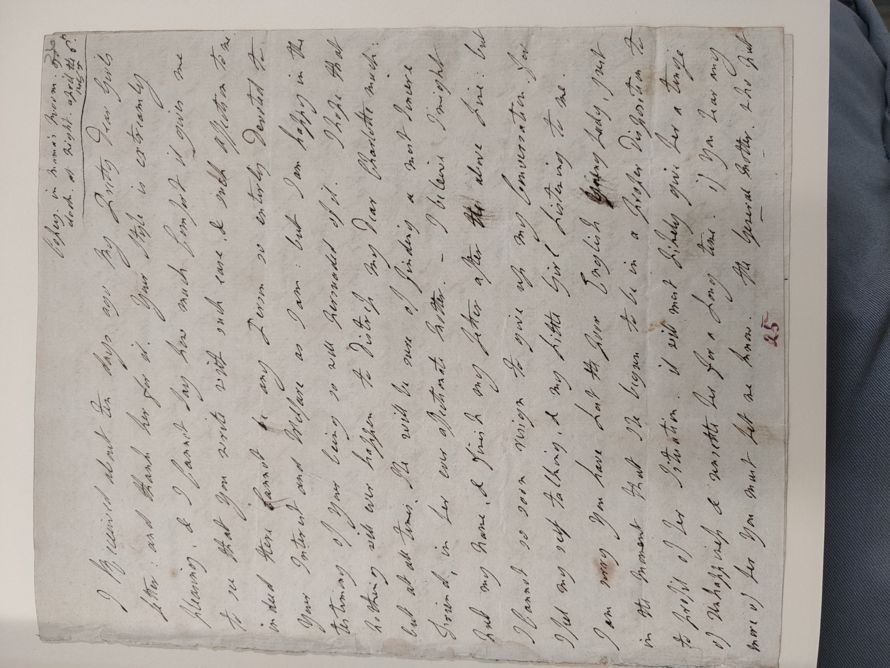 in mama's Room.
at night. april the 6th
I Received about ten days ago My Pretty Dear Girls
letter: and thank her for it. Your Style is extreamly
pleasing, & I Cannot Say how much Comfort it gives me
to see that You write with such ease, & such affection to me
indeed there Cannot be any Person so entierly Devoted to
Your Interest and Welfare as I am: but I am happy in the
certainty of Your being so well perswaded of it. I hope that
nothing will ever happen to Distress my Dear Charlotte much:
but at all times She will be sure of finding a most Sincere
Friend, in her ever affectionate Mother. – I beleive I might
put my name, & finish my letter after the above Line: but
I Cannot so soon resign to give up my Conversation for
I feel my self talking, & my little Girl listening to me.
I am sorry You have lost the poor English Young Lady, just
in the moment that she begun to be in a proper Disposition to
to profit of her Situation. it will most likely give her a tinge
of Unhappiness & unsettle her for a long time. if You hear any
more of her You must let me know. the General Mother. who put
25